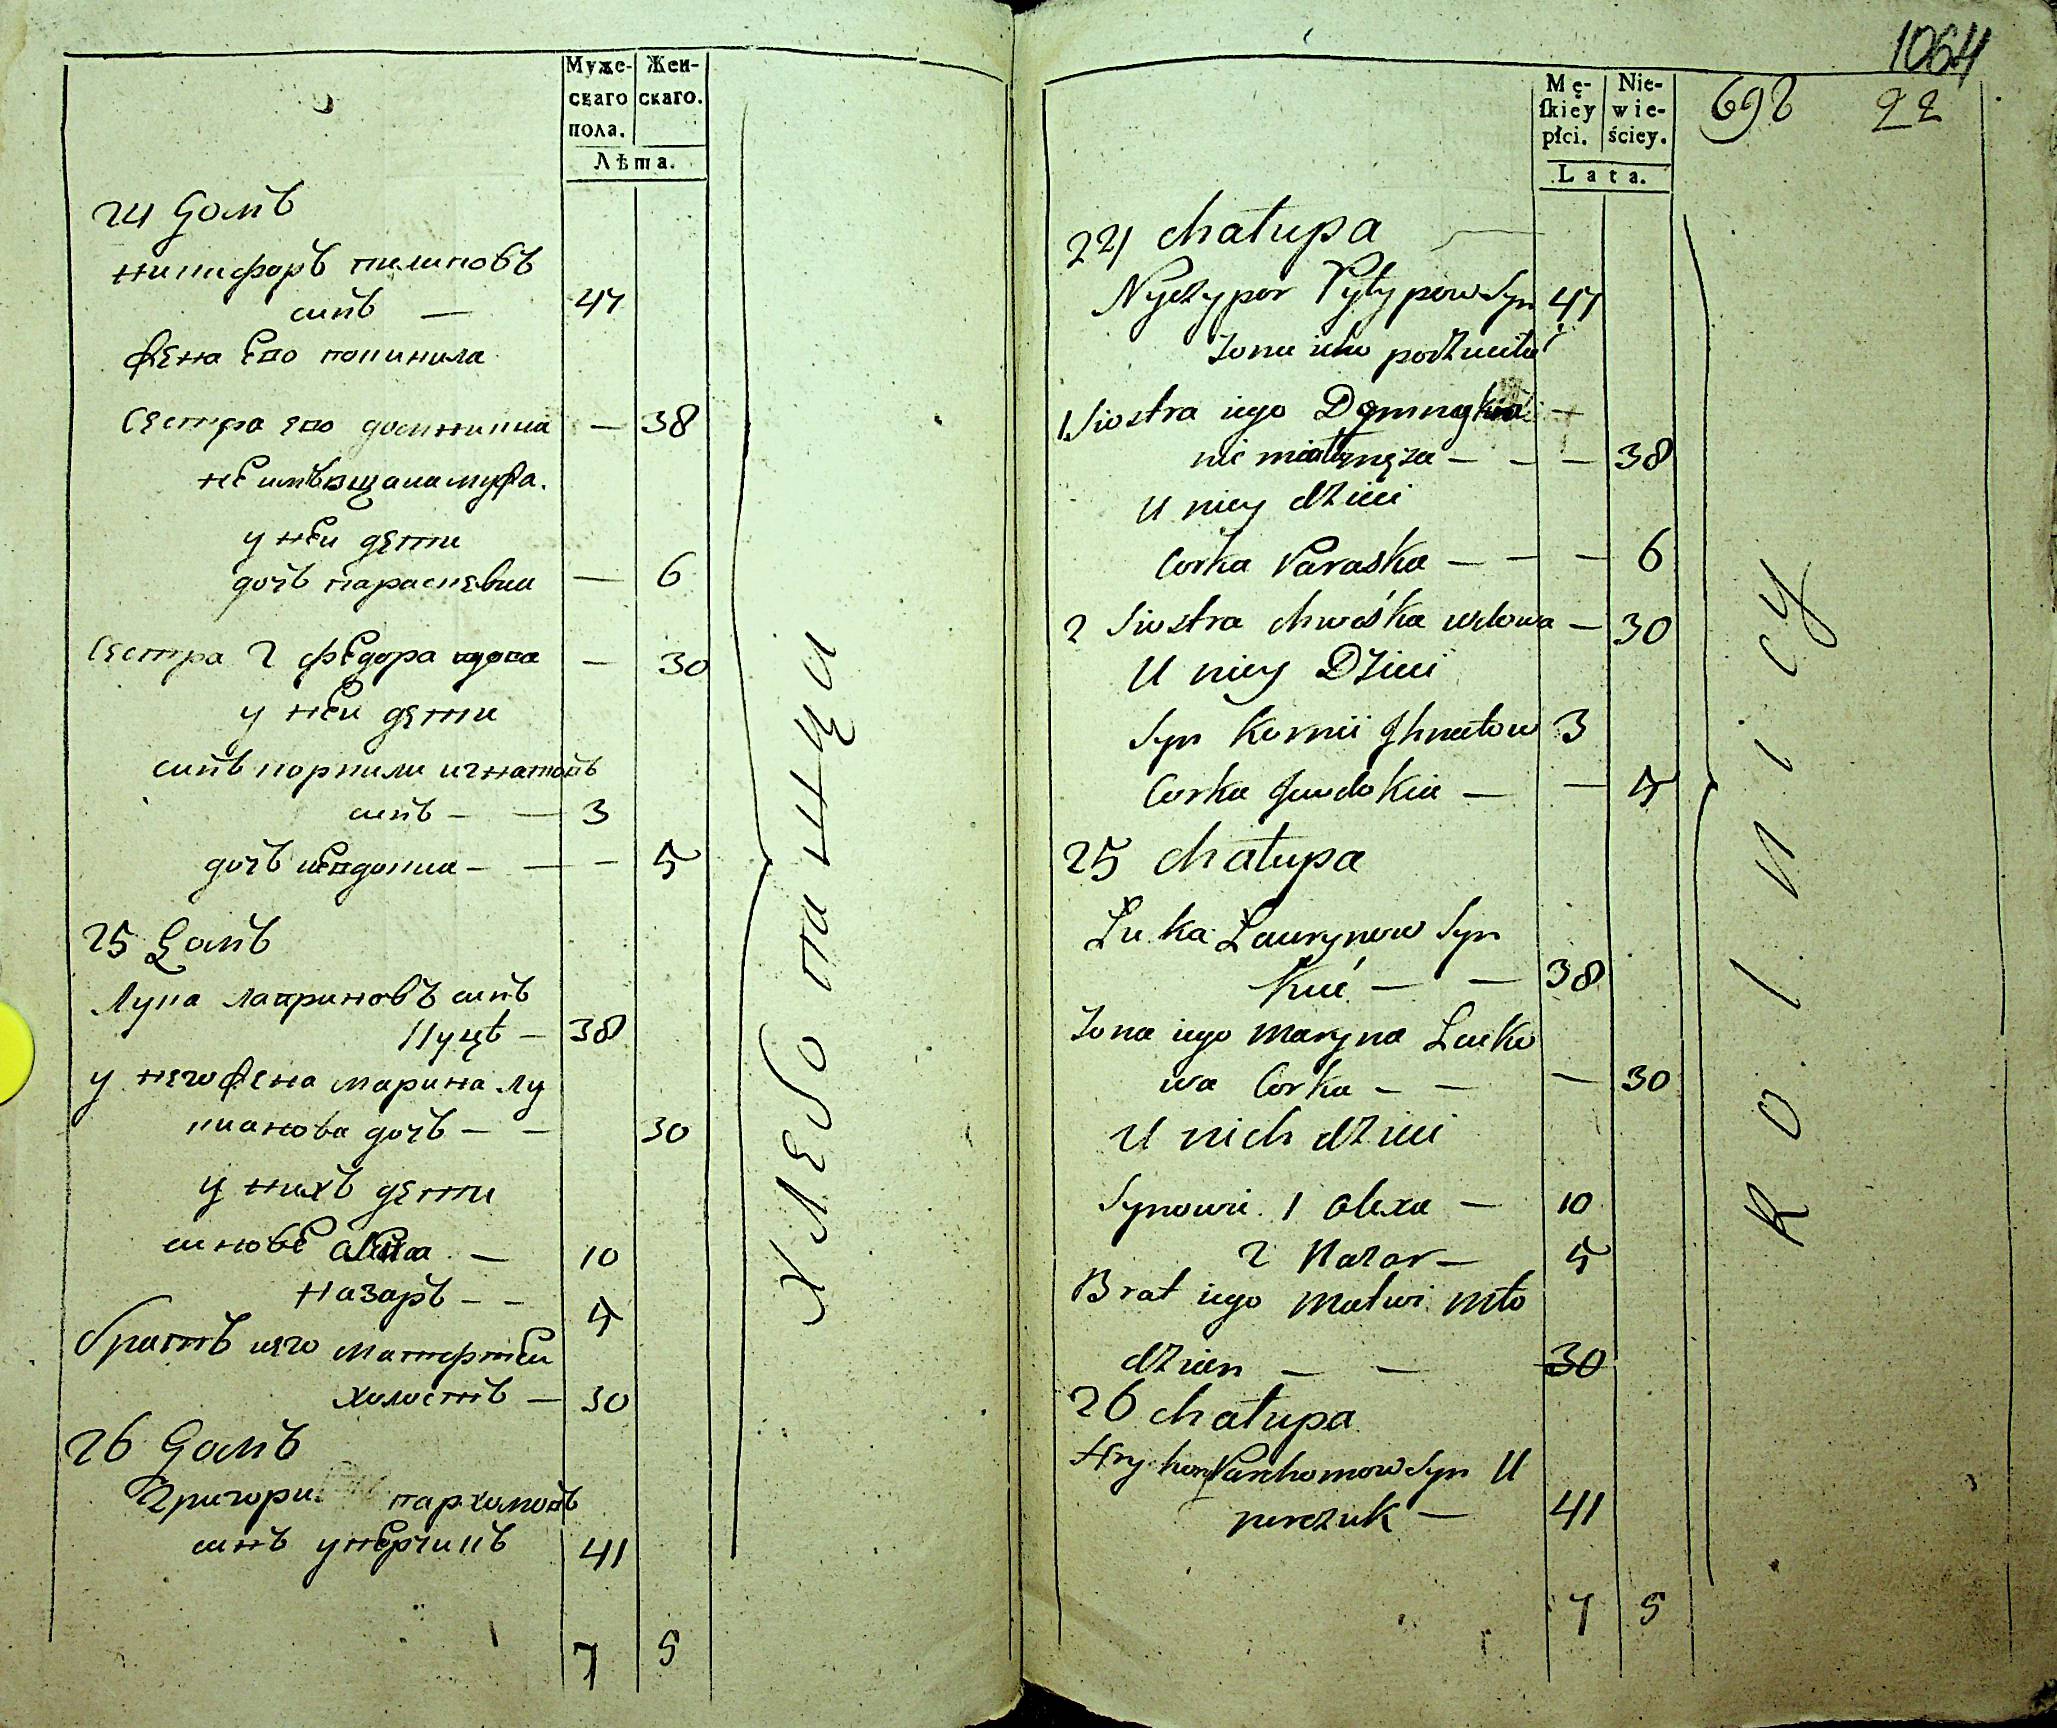 Муже-
скаго
пола.
Жен-
скаго.
Лѣта.
24 домъ
никифоръ пилиповъ
синъ — 47
жена его покинила
сестра его домникиа — 38
не имѣвщаиа мужа.
у неи дети
дочъ параскевиа — 6
сестра 2 феодора вдова — 30
у неи дети
синъ корнили игнатовъ
синъ — — 3
дочъ иевдокиа — — — 5
25 домъ
Лука лавриновъ синъ
Куцъ — 38
у него жена марина лу
кианова дочъ — — 30
у нихъ дети
синове — 10
назаръ — — 5
братъ иего
холостъ — 30
26 домъ
Григори пархомовъ
синъ 41
7 5
хлебопашци
1064
698 22
Mę-
ſkiey
płci.
Nie-
wie-
ściey.
Lata.
24 chałupa
Nyczypor Pyłypow Syn 47
żona ieho podzuciła
1 Siostra iego Domnykia —
nie miała męża — — — 38
U niey dzieci
Corka Paraska — — — 6
2 Siostra chweśka wdowa — 30
U niey Dzieci
Syn Kornii Ihnatow 3
Corka Jewdokia — — 5
25 chałupa
Łuka Ławrynow Syn
Kuć — — 38
żona iego Maryna Łuko
wa Corka — — — 30
U nich dzieci
Synowie. 1 olexa — 10
2 Nazar — 5
Brat iego Matwi mło
dzien — — 30
26 chałupa
Hryhory Parchomow Syn U
nerczuk — 41
7 5
Rolnicy